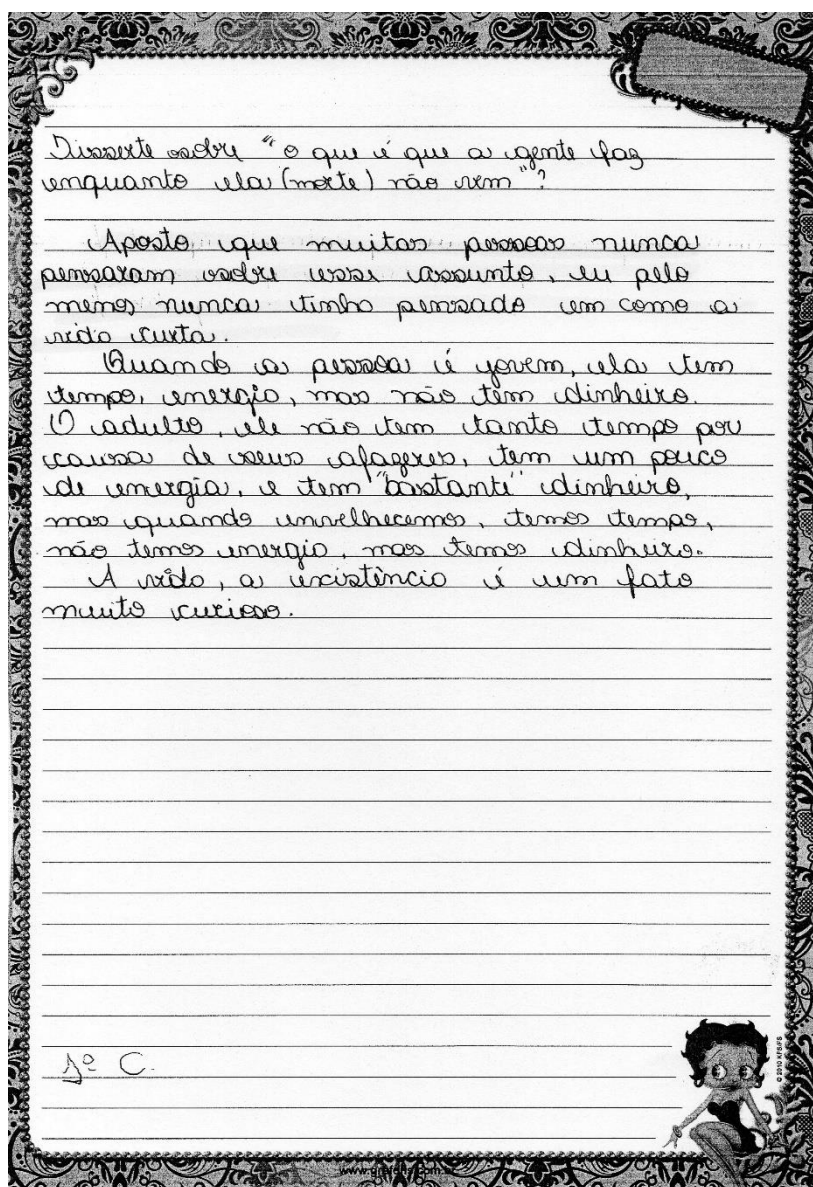 Disserte sobre "o que é que a gente faz
enquanto ela (morte) não vem"?
Aposto que muitas pessoas nunca
pensaram sobre esse assunto, eu pelo
menos nunca tinha pensado em como a
vida curta.
Quando a pessoa é jovem, ela tem
tempo, energia, mas não tem dinheiro.
O adulto, ele não tem tanto tempo por
causa de seus afazeres, tem um pouco
de energia, e tem "bastante" dinheiro,
mas quando envelhecemos, temos tempo,
não temos energia, mas temos dinheiro.
A vida, a existência é um fato
muito curioso.
1º C.
© 2010 KFS/FS